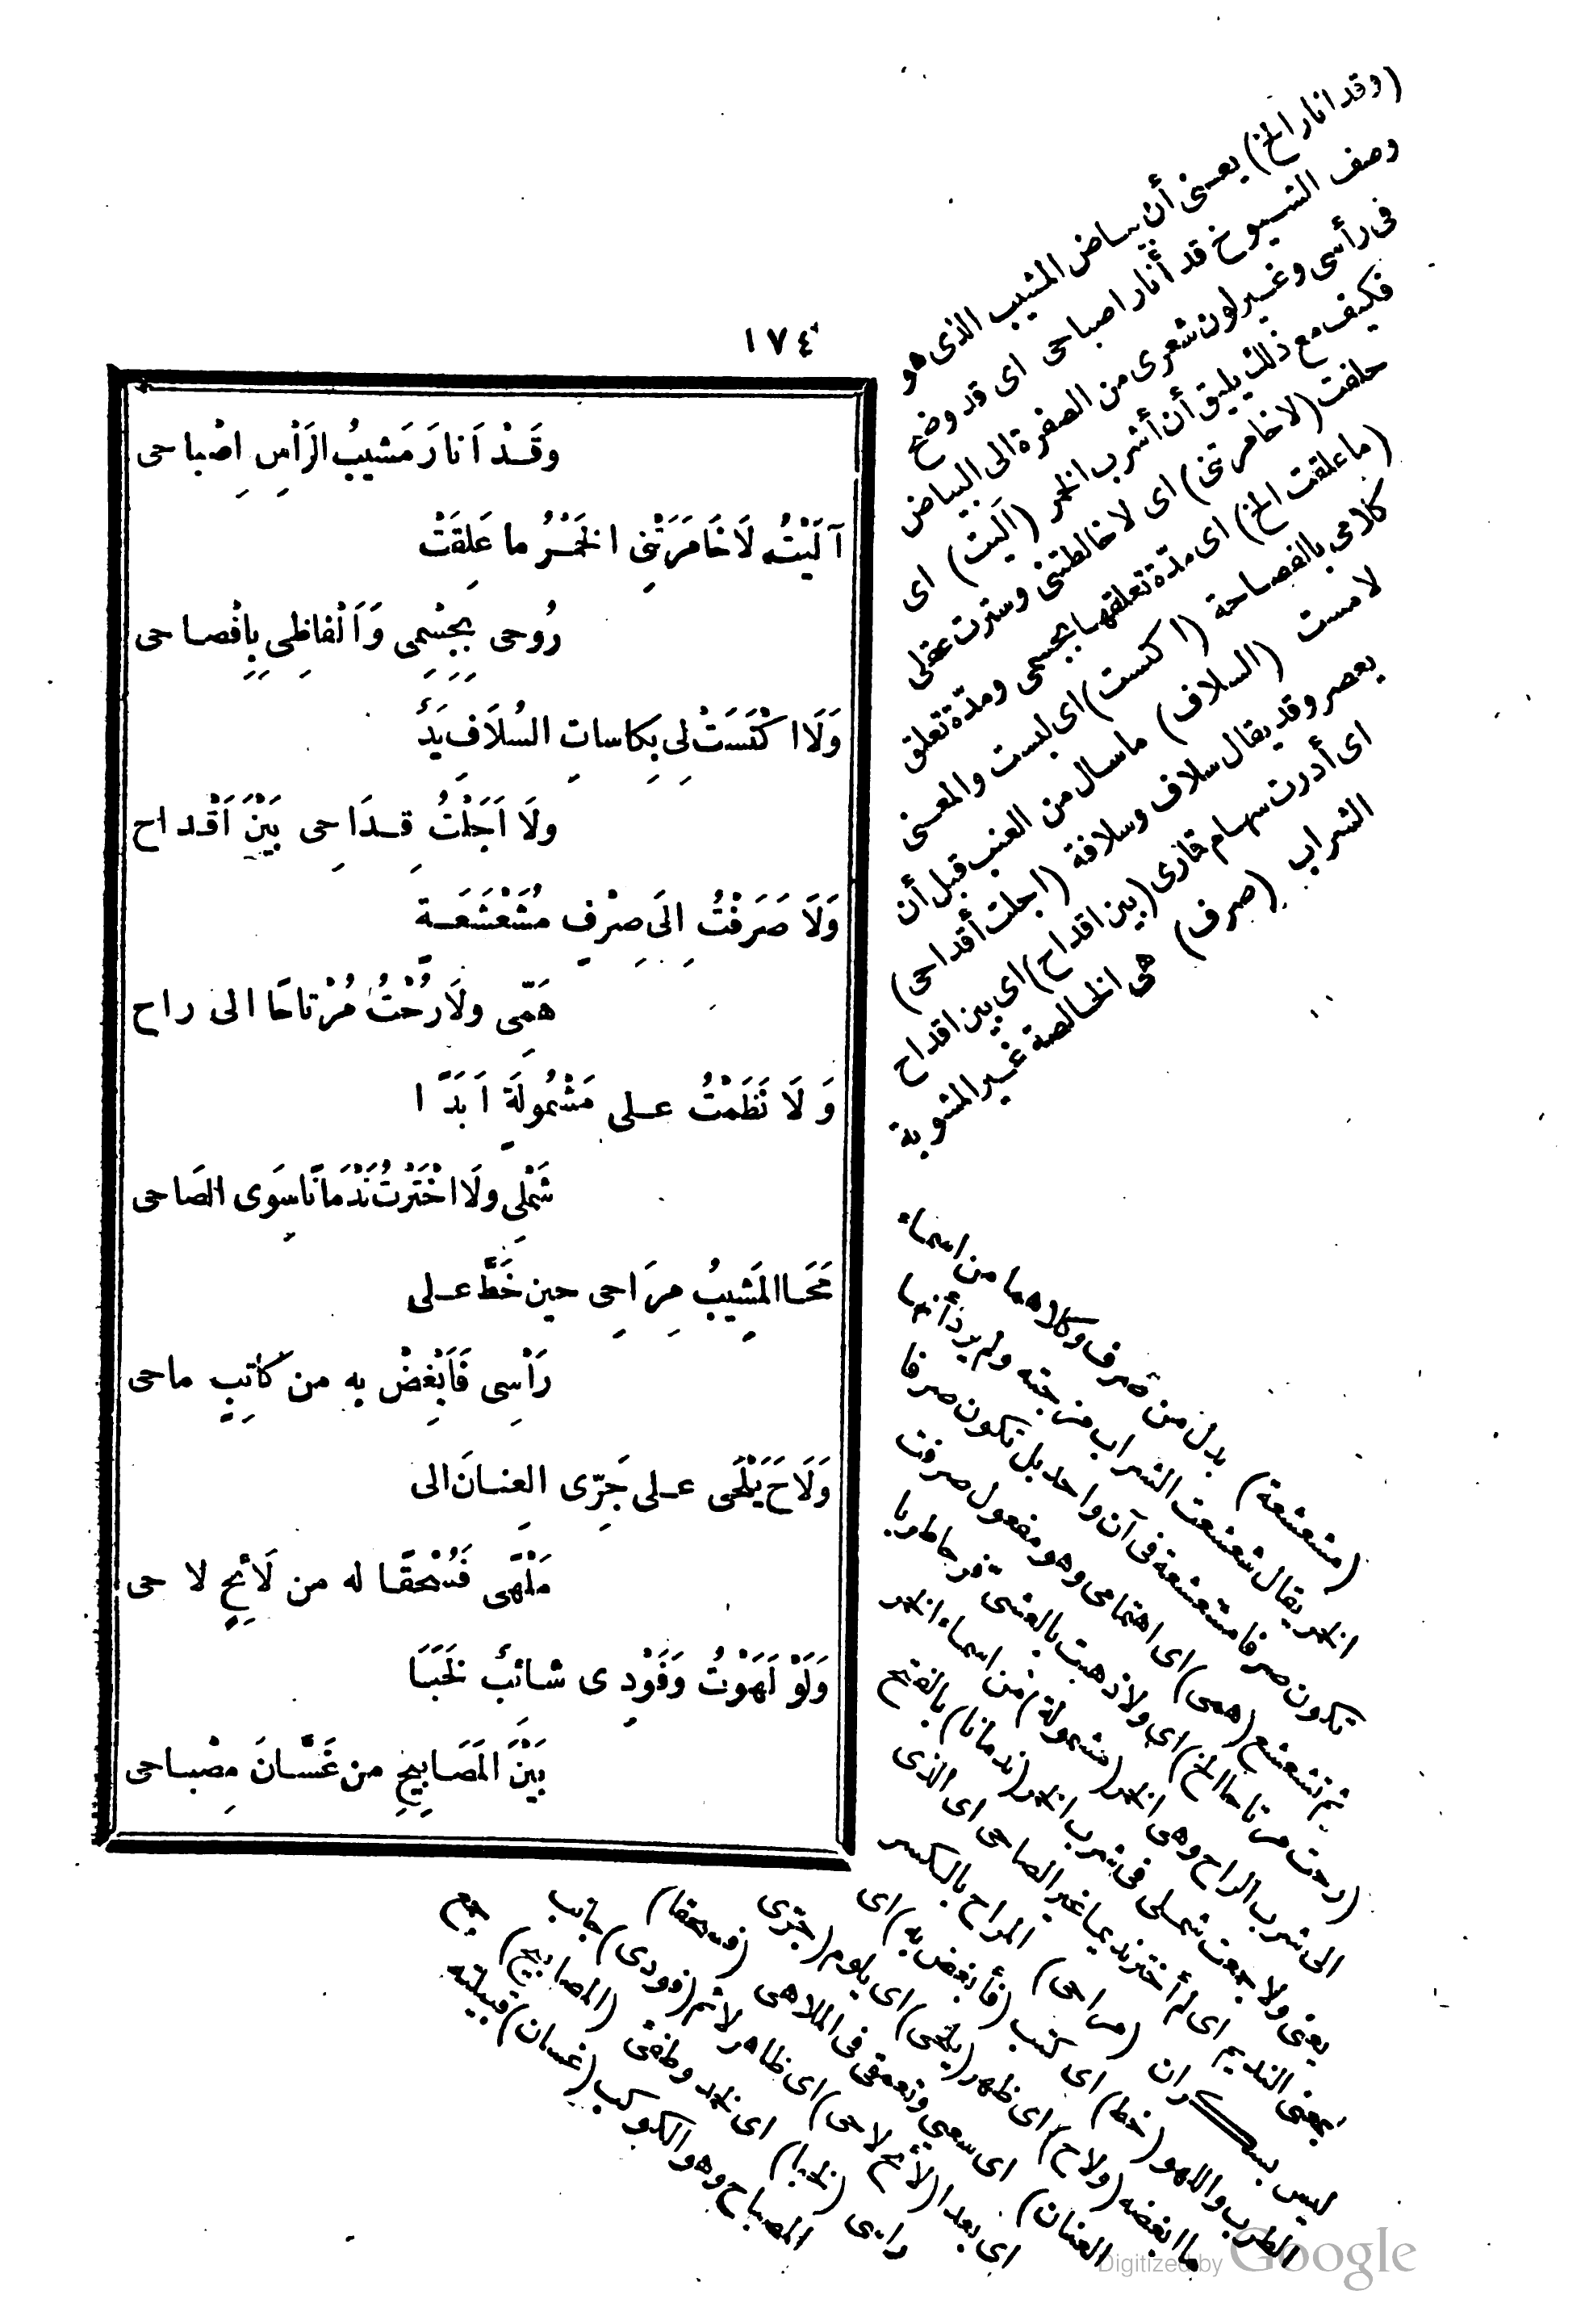 ١٧٤
وَقَدْ اَنارَ مَشيبُ الرَأْسِ اِصْباحى
آلَيْتُ لَاخَامَرَتْنِى الخَمْرُ ما عَلِقَتْ
رُوحى بِجِسْمِى وَاَلْفاظِى بِاِفْصاحى
وَلَا اكْتَسَتْ لِى بِكاساتِ السُلَافِ يَدٌ
ولَا اَجَلْتُ قِدَاحِى بَيْنَ اَقْداح
وَلَا صَرَفْتُ اِلَى صِرْفٍ مُشَعْشَعَةٍ
هَمِّى ولَا رُحْتُ مُرْتاحًا الى راح
وَلَا نَظَمْتُ على مَشْمُولَةٍ اَبَدًا
شَمْلِى ولَا اخْتَرْتُ نَدْمَانًا سِوَى الصَاحى
مَحَا المَشِيبُ مِرَاحِى حين خَطَّ على
رَأْسِى فَاَبْغِضْ بِه من كاتِبٍ ماحى
وَلَاحَ يَلْحَى على جَرِّى العِنانَ الى
مَلْهًى فَسُحْقًا له من لَائِحٍ لاحى
وَلَوْ لَهَوْتُ وَفَوْدِى شائبٌ لَخَبَا
بَيْنَ المَصَابِيحِ من غَسَّانَ مِصْباحى
(وقد انار الخ) يعنى أن بياض المشيب الذى هو
وصف الشيوخ قد أنار اصباحى اى قد وضح
فى رأسى وغير لون شعرى من الصفرة الى البياض
فكيف مع ذلك يليق أن أشرب الخمر (آليت) اى
حلفت (لاخامرتنى) اى لاخالطتنى وسترت عقلى
(ماعلقت الخ) اى مدّة تعلقها بجسمى ومدّة تعلق
كلامى بالفصاحة (اكتست) اى لبست والمعنى
لامست (السلاف) ماسال من العنب قبل أن
يعصر وقد يقال سلاف وسلافة (اجلت أقداحى)
اى أدرت سهام قمارى (بين اقداح) اى بين اقداح
الشراب (صرف) هى الخالصة غير المشوبة
(مشعشعة) بدل من صرف وكلاهما من اسماء
الخمر يقال شعشعت الشراب مزجته ولم يرد أنها
تكون صرفا مشعشعة فى آن واحد بل تكون صرفا
ثم تشعشع (همى) اى اهتمامى وهو مفعول صرفت
(رحت مرتاحا الخ) اى ولا ذهبت بالعشى فرحا طربا
الى شرب الراح وهى الخمر (مشمولة) من اسماء الخمر
يعنى ولا جمعت شملى فى شرب الخمر (ندمانا) بالفتح
بمعنى النديم اى لم أختر نديما غير الصاحى اى الذى
ليس بسكران (مراحى) المراح بالكسر
الطرب واللهو (خط) اى كتب (فأبغض به) اى
ما ابغضه (ولاح) اى ظهر (يلحى) اى يلوم (جرّى
العنان) اى سعيى وتعمقى فى الملاهى (فسحقا)
اى بعدا (لائح لاحى) اى ظاهر لائم (فودى) جانب
راسى (لخبا) اى لخمد وطفئ (المصابيح) جمع
المصباح وهو الكوكب (غسان) قبيلته
Digitized by Google